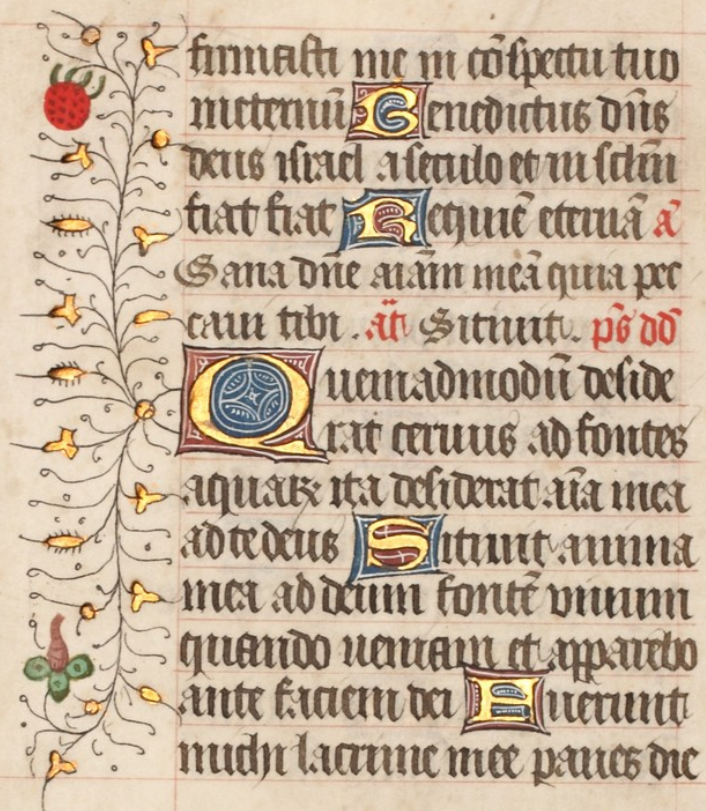 firmasti me in cõspectu tuo
ineternũ Benedictus dñs
deus israel a seculo et in sclm̃
fiat fiat Requiẽ eternã ã
Sana dñe aĩam meã quia pec
caui tibi . añ Sitiuit . ps̃ dd̃
Quemadmodũ deside
rat ceruus ad fontes
aquaꝝ ita desiderat aĩa mea
ad te deus Sitiuit anima
mea ad deum fontẽ viuum
quando ueniam et apparebo
ante faciem dei Fuerunt
michi lacrime mee panes die